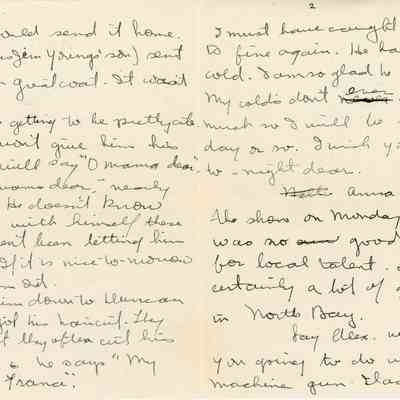 would send it home.
Youngs' son) sent
greatcoat. It wasn't
getting to be pretty cute.
won't give him his
will say "O mama dear,"
mama dear," nearly
He doesn't know
with himself these
been letting him
If it is nice to-morrow
him out.
him down to Duncan
got his haircut. They
they often cut his
he says "My
2
I must have caught
D fine again. He ha
cold. I am so glad he
My colds don't never ever
much so I will be
day or so. I wish y
to-night dear.
Anna
The show on Monday
was so good
for local talent.
certainly a lot of
in North Bay.
Say Alex. w
you going to do w
machine gun